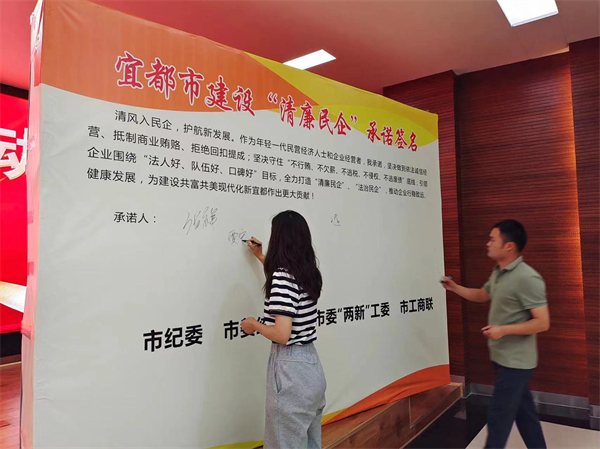 宜都市建设“清廉民企”承诺签名
清风入民企，护航新发展。作为年轻一代民营经济人士和企业经营者，我承诺，坚决做到依法诚信经
营、抵制商业贿赂、拒绝回扣提成；坚决守住“不行贿、不欠薪、不逃税、不侵权、不逃废债”底线；引领
企业围绕“法人好、队伍好、口碑好”目标，全力打造“清廉民企”、“法治民企”，推动企业行稳致远、
健康发展，为建设共富共美现代化新宜都作出更大贡献！
承诺人：
市纪委 市委 市委“两新”工委 市工商联
动